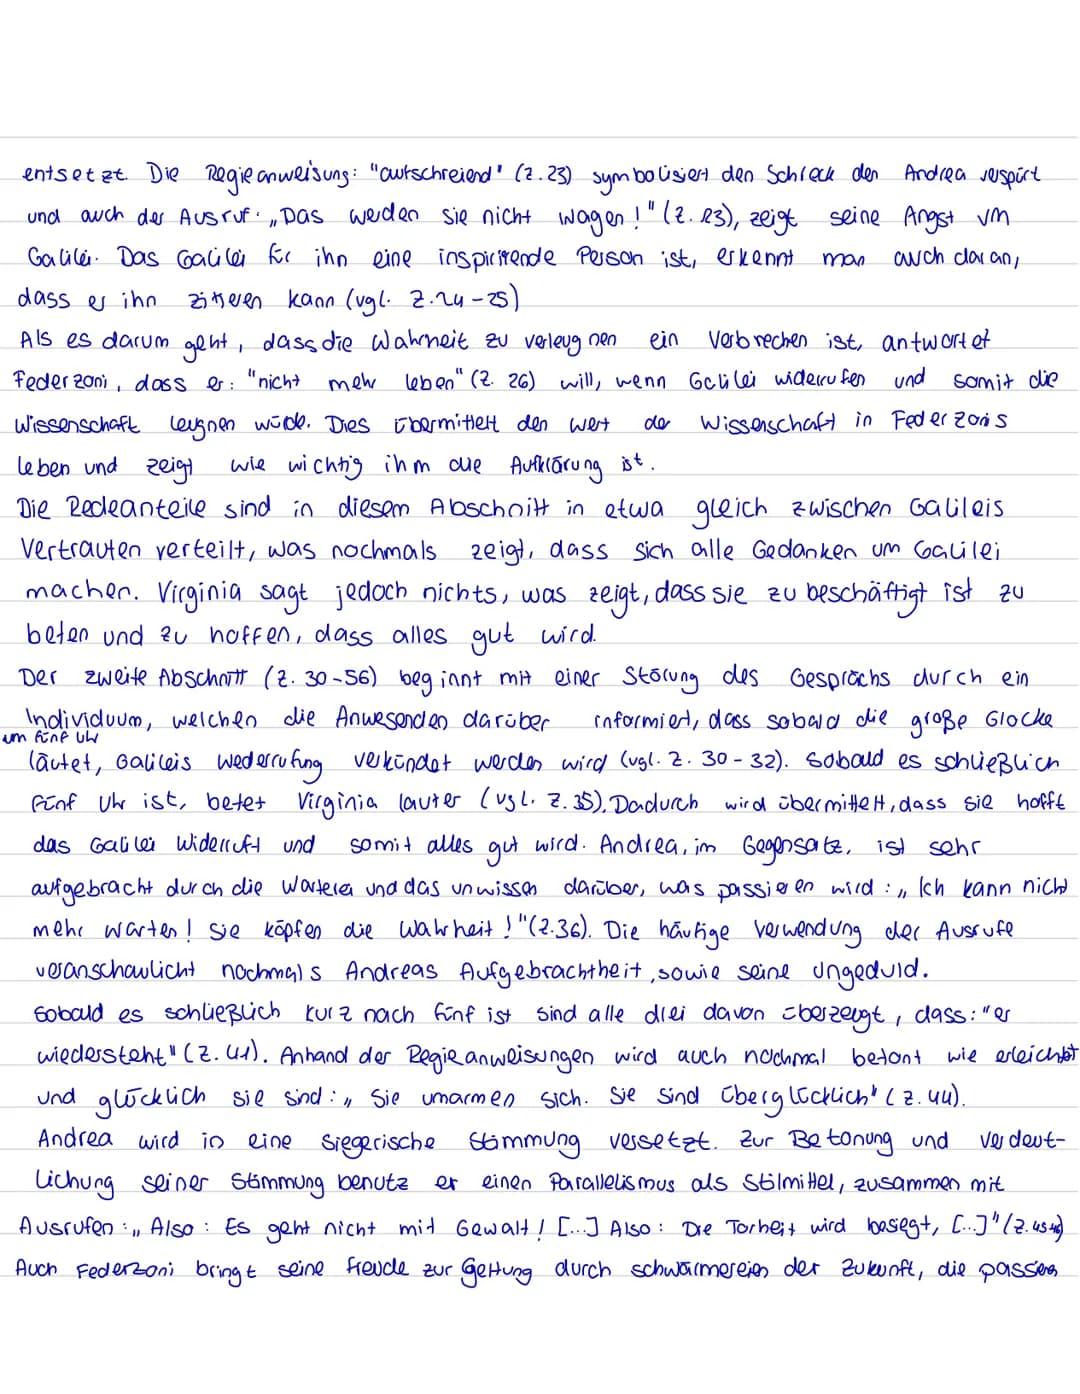 entsetzt. Die Regieanweisung: "aufschreiend" (Z. 23) symbolisiert den Schreck den Andrea verspürt
und auch der Ausruf: „Das werden sie nicht wagen!" (Z. 23), zeigt seine Angst um
Galilei. Das Galilei für ihn eine inspirirende Person ist, erkennt man auch daran,
dass er ihn zitieren kann (vgl. Z. 24-25)
Als es darum geht, dass die Wahrheit zu verleugnen ein Verbrechen ist, antwortet
Federzoni, dass er: "nicht mehr leben" (Z. 26) will, wenn Galilei widerrufen und somit die
Wissenschaft leugnen würde. Dies übermittelt den Wert der Wissenschaft in Federzonis
leben und zeigt wie wichtig ihm die Aufklärung ist.
Die Redeanteile sind in diesem Abschnitt in etwa gleich zwischen Galileis
Vertrauten verteilt, was nochmals zeigt, dass sich alle Gedanken um Galilei
machen. Virginia sagt jedoch nichts, was zeigt, dass sie zu beschäftigt ist zu
beten und zu hoffen, dass alles gut wird.
Der zweite Abschnitt (Z. 30-56) beginnt mit einer Störung des Gesprächs durch ein
Individuum, welchen die Anwesenden darüber informiert, dass sobald die große Glocke
um fünf Uhr
läutet, Galileis Wederrufung verkündet werden wird (vgl. Z. 30-32). Sobald es schließlich
fünf Uhr ist, betet Virginia lauter (vgl. Z. 35). Dadurch wird übermittelt, dass sie hofft
das Galilei Widerruft und somit alles gut wird. Andrea, im Gegensatz, ist sehr
aufgebracht durch die Warterei und das unwissen darüber, was passieren wird: „Ich kann nicht
mehr warten! Sie köpfen die Wahrheit!" (Z. 36). Die häufige Verwendung der Ausrufe
veranschaulicht nochmals Andreas Aufgebrachtheit, sowie seine Ungeduld.
Sobald es schließlich kurz nach fünf ist sind alle drei davon überzeugt, dass: "er
wiedersteht" (Z. 41). Anhand der Regieanweisungen wird auch nochmal betont wie erleichtert
und glücklich sie sind: „Sie umarmen sich. Sie sind überglücklich" (Z. 44).
Andrea wird in eine siegerische Stimmung versetzt. Zur Betonung und verdeut-
lichung seiner Stimmung benutz er einen Parallelismus als Stilmittel, zusammen mit
Ausrufen: „Also: Es geht nicht mit Gewalt! [...] Also: Die Torheit wird besiegt, [...]" (Z. 45-46)
Auch Federzoni bringt seine freude zur geltung durch schwärmereien der Zukunft, die